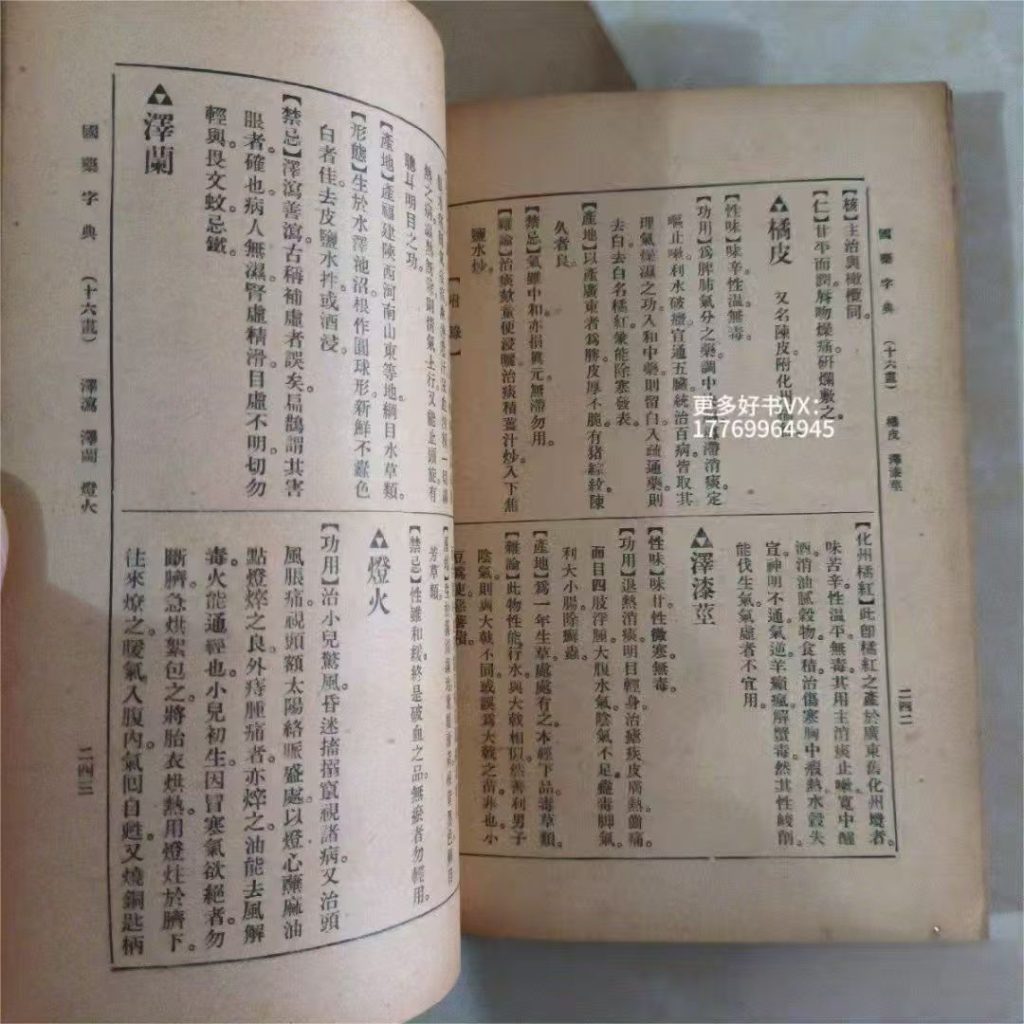 國藥字典 (十六畫) 橘皮 澤漆莖
二四二
【核】主治與橄欖同。
【仁】甘平而潤。唇吻燥痛。研爛敷之。
▲橘皮 又名陳皮附化
【性味】味辛。性溫。無毒。
【功用】爲脾肺氣分之藥。調中
滯消痰。定
嘔止嗽。利水破癥。宣通五臟。統治百病。皆取其
理氣燥濕之功。入和中藥則留白。入疏通藥則
去白。去白名橘紅。兼能除寒發表。
【產地】以產廣東者爲勝。皮厚不脆。有猪綜紋。陳
久者良。
【禁忌】氣雖中和。亦損眞元。無滯勿用。
【雜論】治痰欬。童便浸曬。治痰積。薑汁炒。入下焦
鹽水炒。
【化州橘紅】此卽橘紅之產於廣東舊化州境者。
味苦辛。性溫平。無毒。其用主消痰止嗽。寬中醒
酒。消油膩穀物食積。治傷寒胸中瘕熱。水穀失
宣。神明不通。氣逆羊癲瘋。解蟹毒。然其性峻削。
能伐生氣。氣虛者不宜用。
▲澤漆莖
【性味】味甘。性微寒。無毒。
【功用】退熱消痰。明目輕身。治瘧疾。皮膚熱。齒痛。
面目四肢浮腫。大腹水氣。陰氣不足。蠱毒脚氣。
利大小腸。除癬蟲。
【產地】爲一年生草。處處有之。本經下品毒草類。
【雜論】此物性能行水。與大戟相似。然善利男子
陰氣。則與大戟不同。或誤爲大戟之苗。非也。小
豆爲使。惡薯蕷。
國藥字典 (十六畫) 澤瀉 澤蘭 燈火
二四三
熱之病。
上行。又能止頭旋。有
聰耳明目之功。
【產地】產福建陝西河南山東等地。綱目水草類。
【形態】生於水澤池沼。根作圓球形。新鮮不蠹色
白者佳。去皮鹽水拌或酒浸
【禁忌】澤瀉善瀉。古稱補虛者誤矣。扁鵲謂其害
眼者確也。病人無濕。腎虛精滑。目虛不明。切勿
輕與。畏文蚊。忌鐵。
▲澤蘭
【附錄】
芳草類。
【禁忌】性雖和緩。終是破血之品。無瘀者勿輕用。
▲燈火
【功用】治小兒驚風。昏迷搐搦竄視諸病。又治頭
風脹痛。視頭額太陽絡脈盛處。以燈心蘸麻油
點燈焠之良。外痔腫痛者。亦焠之。油能去風解
毒。火能通經也。小兒初生。因冒寒氣欲絕者。勿
斷臍。急烘絮包之。將胎衣烘熱。用燈炷於臍下。
往來燎之。暖氣入腹內。氣回自甦。又燒銅匙柄
更多好书VX：
17769964945